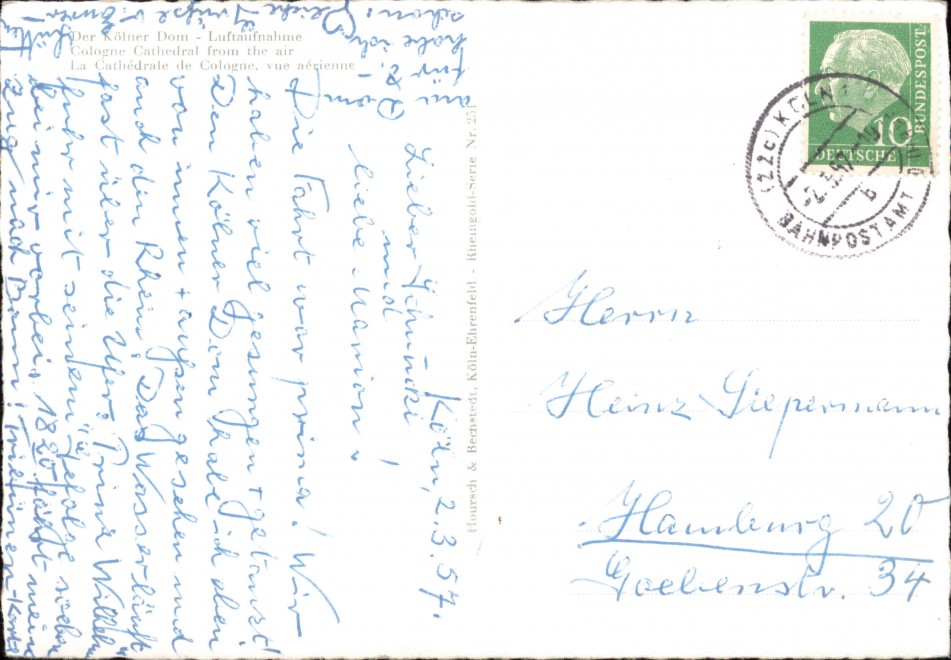 Der Kölner Dom - Luftaufnahme
Cologne Cathedral from the air
La Cathédrale de Cologne, vue aérienne
Hoursch & Bechstedt, Köln-Ehrenfeld - Rheingold-Serie Nr. 251
Köln, 2.3.57.
Lieber
und
liebe Marion!
Die Fahrt war prima! Wir
haben viel gesungen + getanzt!
Den Kölner Dom habe ich eben
von innen + außen gesehen und
auch den Rhein! Das Wasser läuft
fast über die Ufer. Prinz
fuhr mit seinem Gefolge soeben
bei mir vorbei. 18 20 fährt mein
Zug nach Bonn!
am Dom
für
habe ich
schon!
Grüße
DEUTSCHE
BUNDESPOST
10
(22c) KÖLN
2.3.57
b
BAHNPOSTAMT
Herrn
Heinz Siepermann
Hamburg 20
Goebenstr. 34